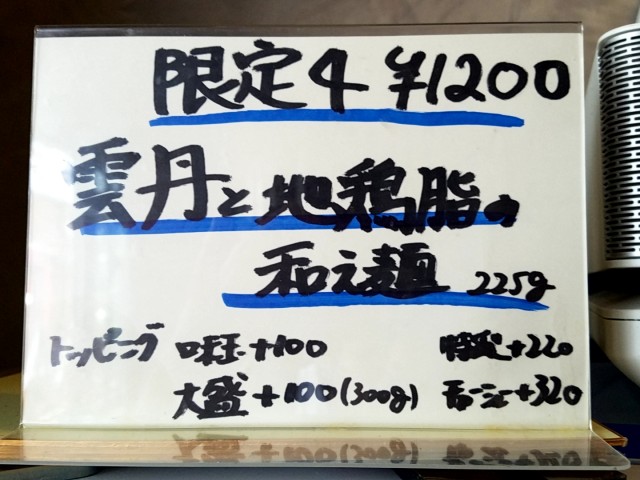 限定4 ¥1200
雲丹と地鶏脂の
和え麺 225g
トッピング 味玉+100 特製+220
大盛+100(300g) チャーシュー+320